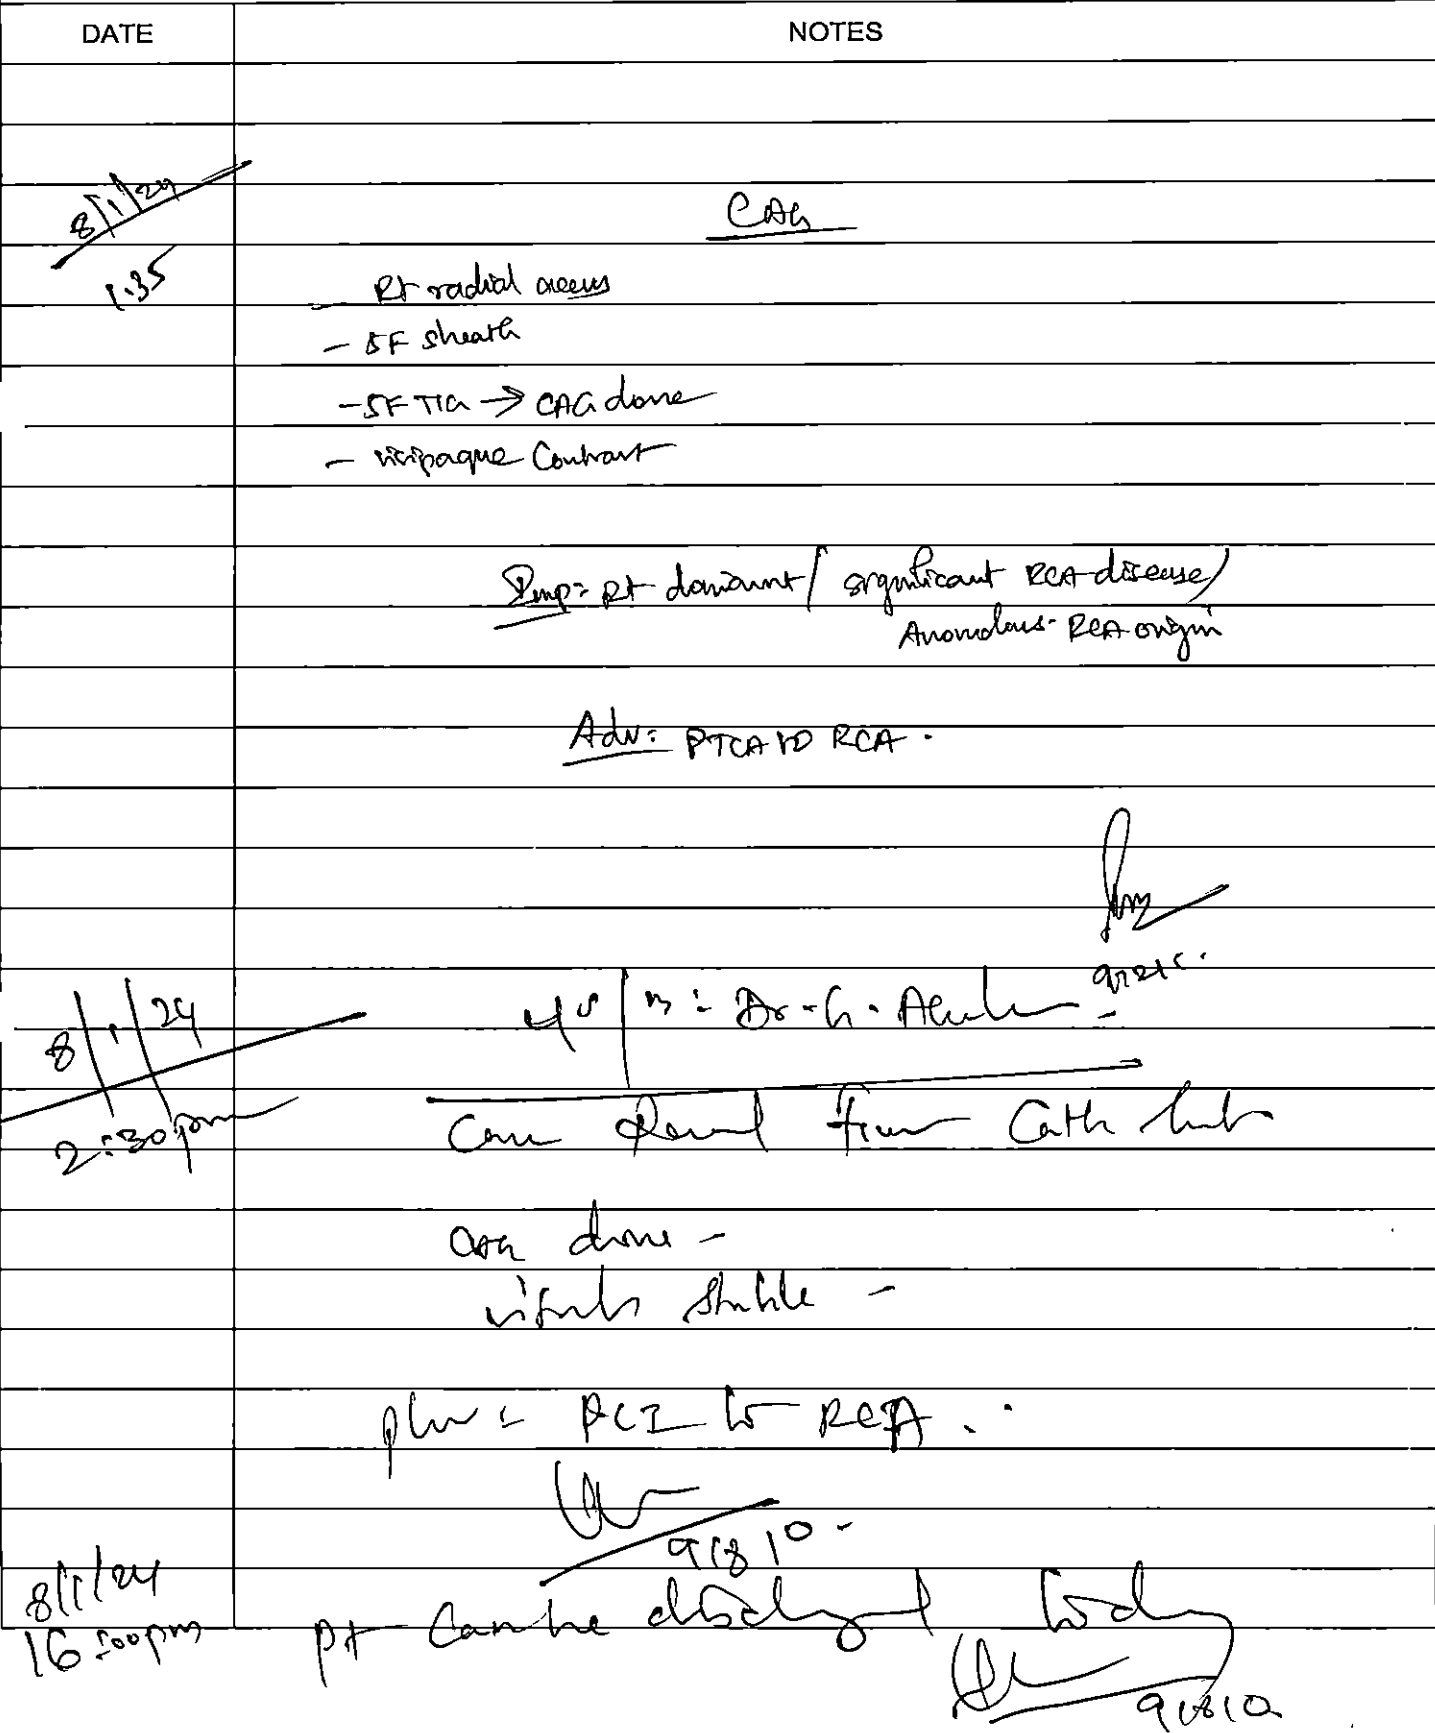 DATE NOTES
8/1/24 CAG
1:35
- Rt radial access
- 5F sheath
- 5F TIG → CAG done
- visipaque Contrast
Imp: Rt dominant / significant RCA disease /
Anomalous RCA origin
Adv: PTCA to RCA.
8/1/24
2:30pm
45/M : Dr. G.
Case Received from Cath Lab
CAG done -
vitals stable -
plan : PCI to RCA.
91810
8/1/24
16:00pm
Pt can be discharged today
91810